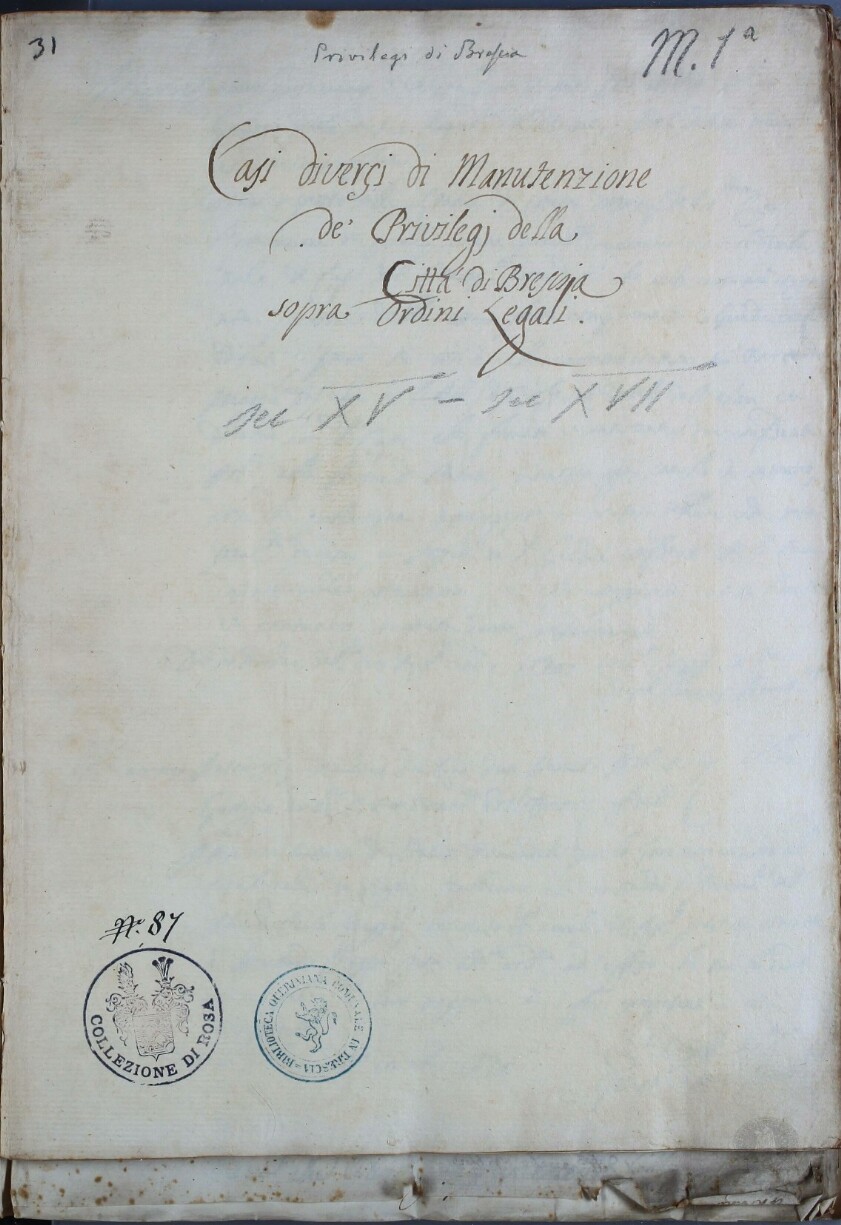 31
Privilegi di Brescia
M. 1ª
Casi diversi di Manutenzione
de' Privilegj della
Città di Brescia
sopra Ordini Legali.
sec XV - sec XVII
N. 87
COLLEZIONE DI ROSA
BIBLIOTECA QUERINIANA COMUNALE IN BRESCIA